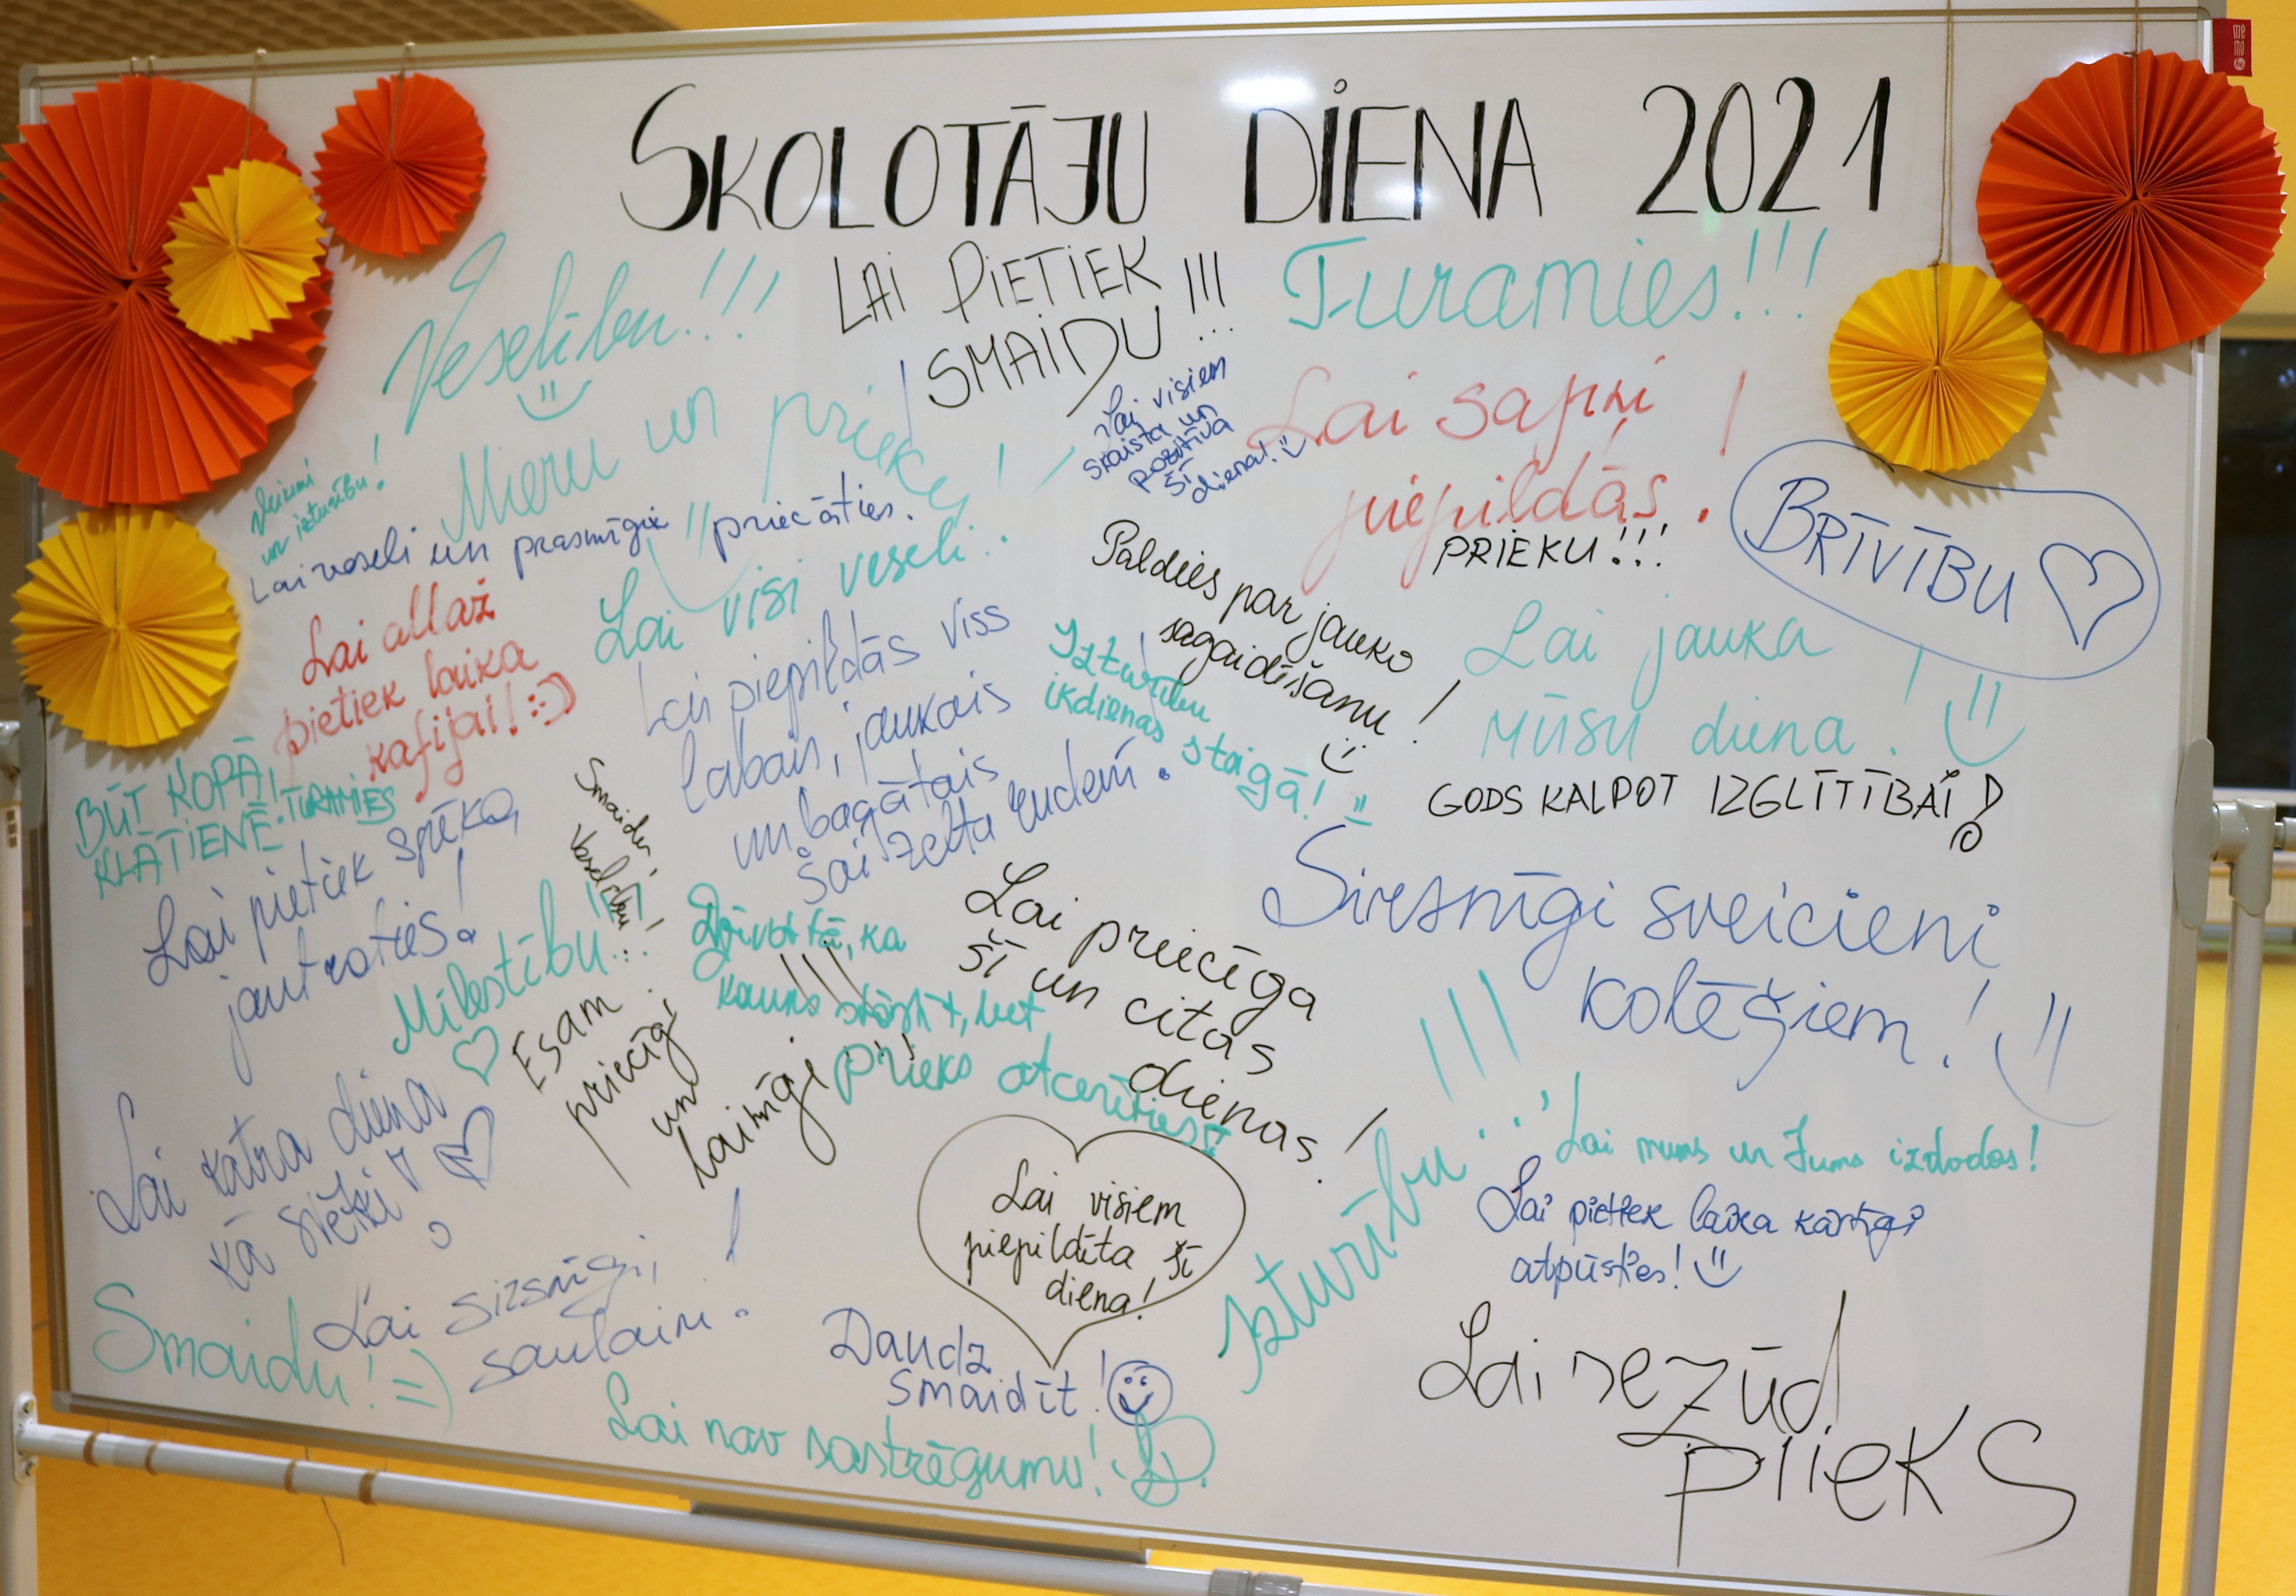 SKOLOTĀJU DIENA 2021
Veselību!!!
LAI PIETIEK
SMAIDU!!!
Turamies!!!
Mieru un prieku!
Lai visiem
skaista un
pozitīva
šī
diena!
Lai sapņi
piepildās!
PRIEKU!!!
BRĪVĪBU
Veiksmi
un izturību!
Lai veseli un prasmīgie priecāties.
Lai visi veseli!
Paldies par jauko
sagaidīšanu!
Lai allaž
pietiek laika
kafijai! :)
Lai piepildās viss
labais, jaukais
un bagātais
šai zelta rudenī!
Izturību
ikdienas staigā! =
Lai jauka
mūsu diena!
GODS KALPOT IZGLĪTĪBAI!
BŪT KOPĀ!
KLĀTIENĒ. TURAMIES
Lai pietiek spēka,
jautroties!
Smaidu!
Veselību!
Mīlestību!!!
Esam
priecīgi
un
laimīgi!!!
Dzīvot tā, ka
kauns stāstīt, bet
prieks atcerēties!
Lai priecīga
šī un citas
dienas!
Sirsnīgi sveicieni
kolēģiem!
Lai katra diena
kā svētki!
Lai visiem
piepildīta šī
diena!
Izturību!!!
Lai mums un Jums izdodas!
Lai pietiek laika kārtīgi
atpūsties!
Smaidu! =)
Lai sirsnīgi,
saulaini!
Daudz
smaidīt!
Lai nav sastrēgumu! :D
Lai nezūd
prieks